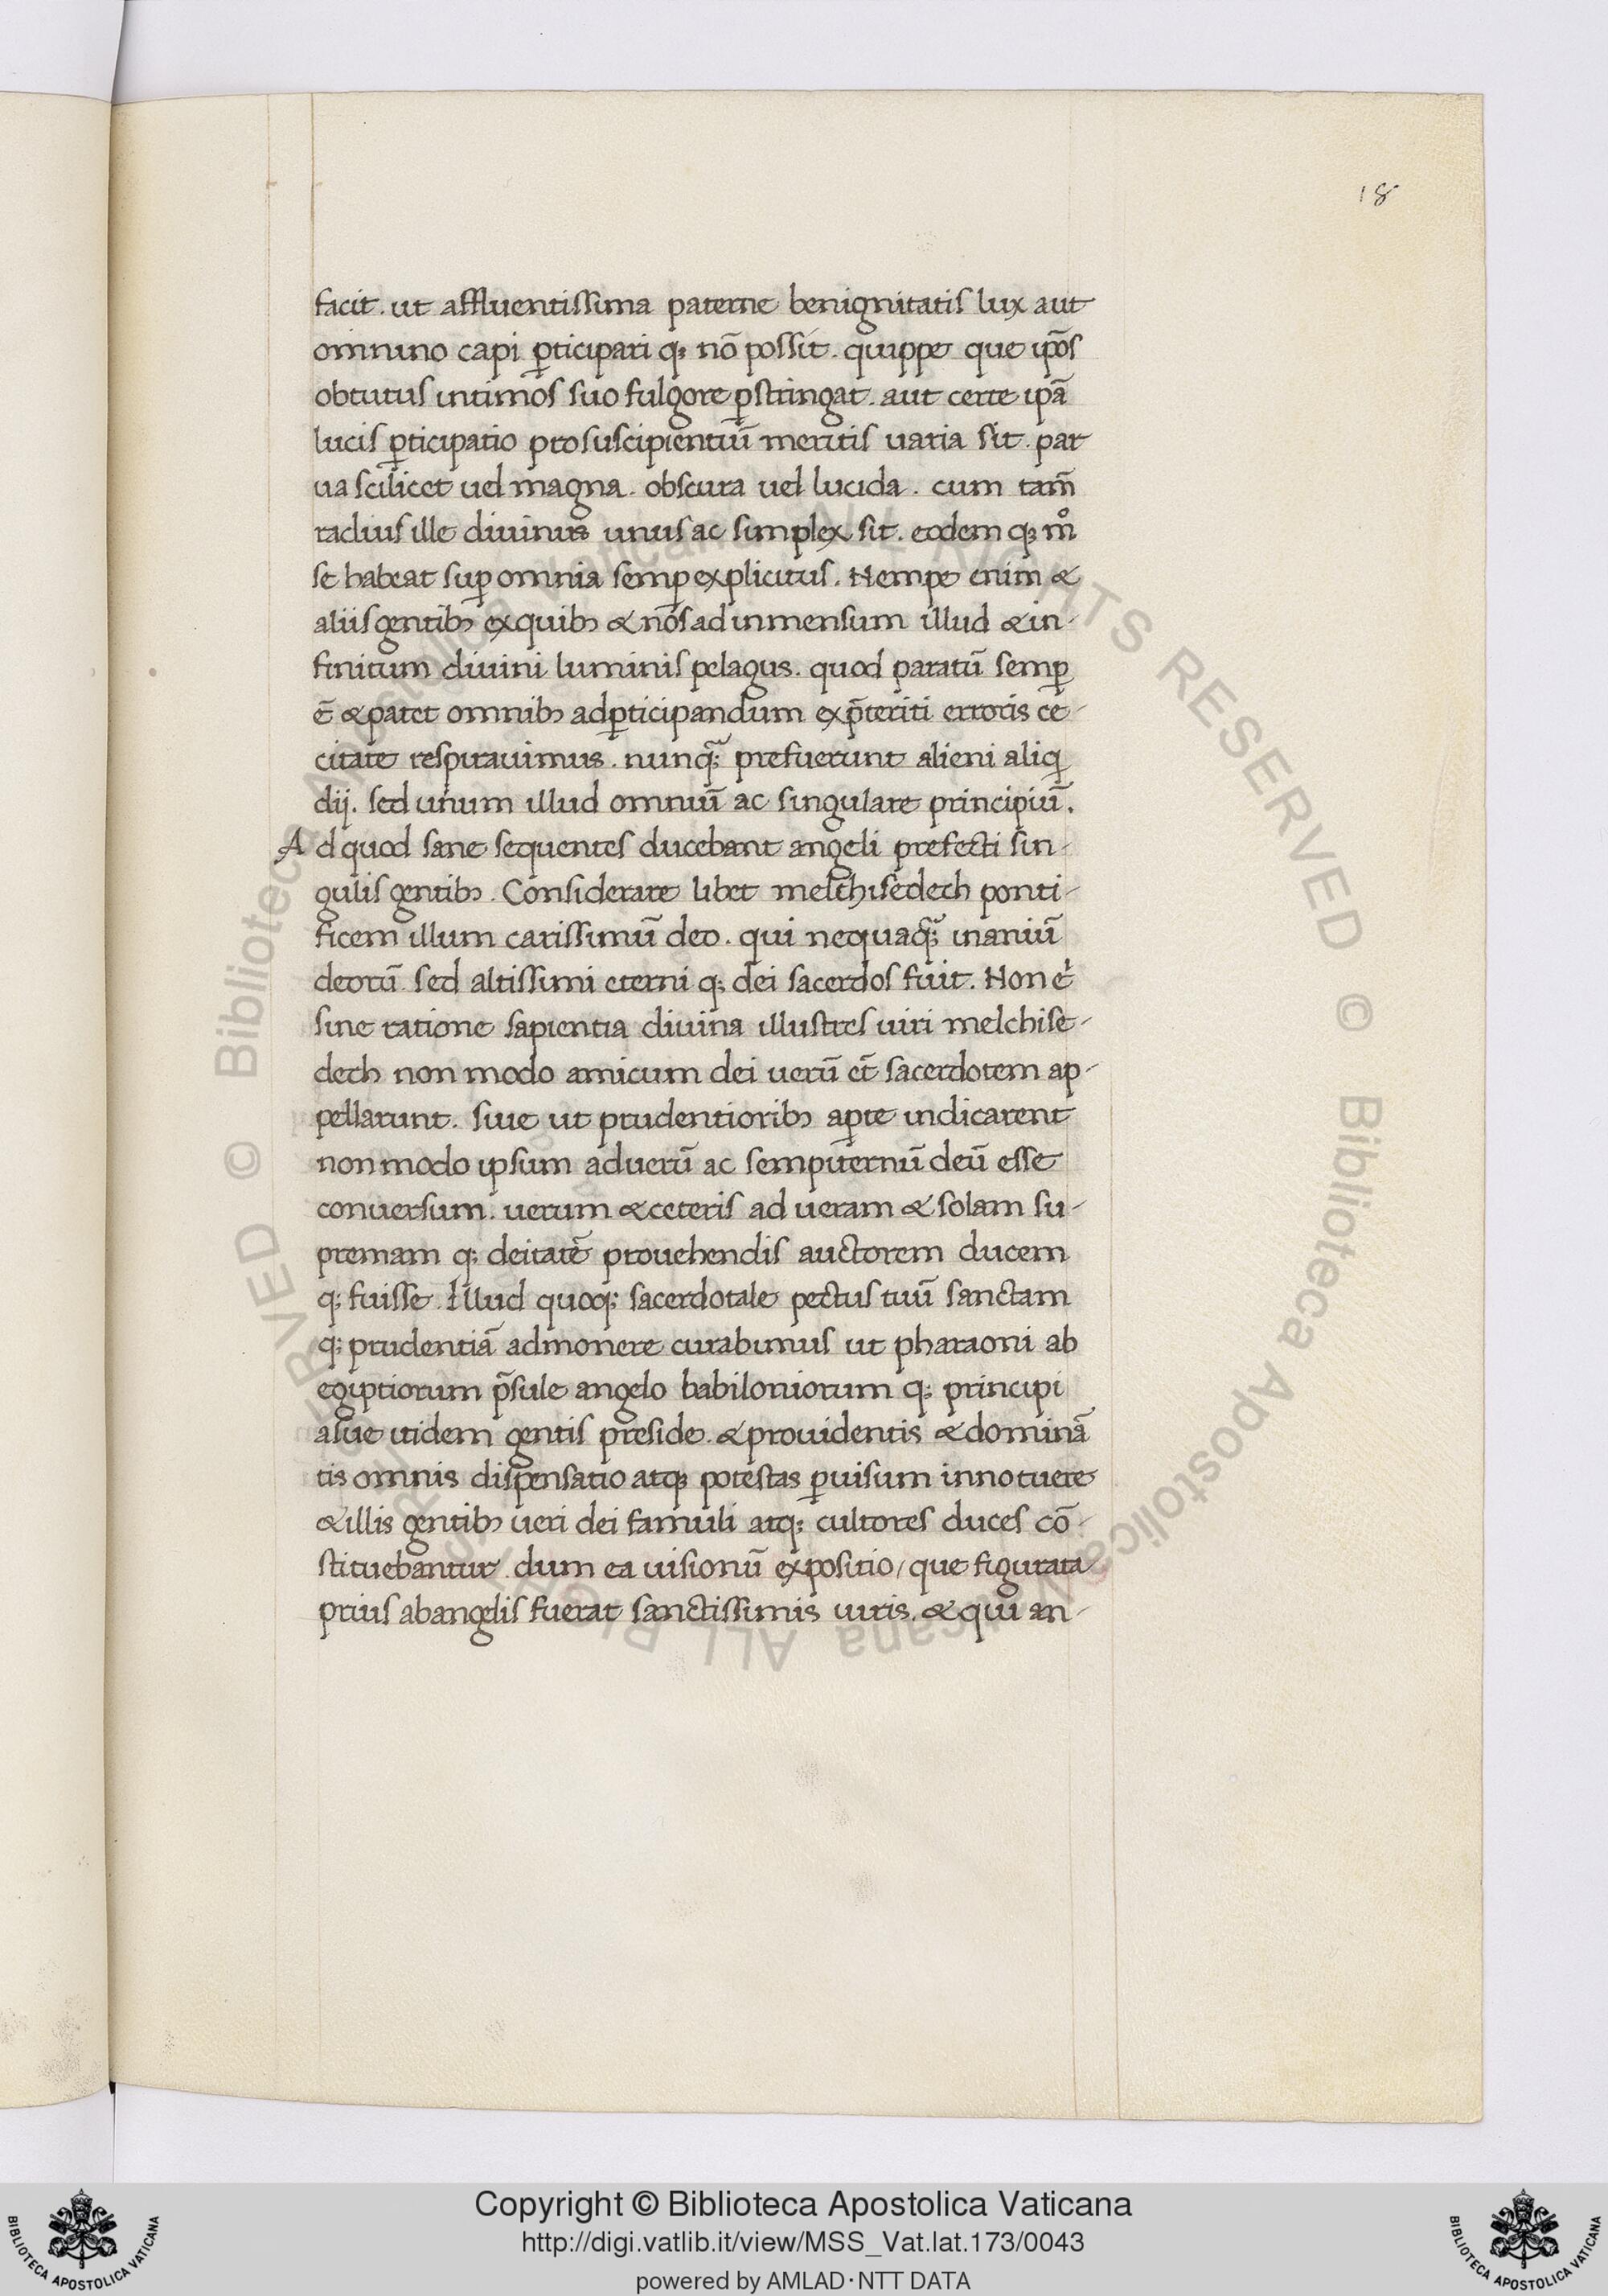 18
facit. ut affluentissima paterne benignitatis lux aut
omnino capi ꝑticipari q; nō possit. quippe que ip̄os
obtutus intimos suo fulgore ꝑstringat. aut certe ip̄ā
lucis ꝑticipatio pro suscipientiū meritis uaria sit. par
ua scilicet uel magna. obscura uel lucida. cum tam̄
radius ille diuinus unus ac simplex sit. eodem q; m̊
se habeat suꝑ omnia semꝑ explicitus. Nempe enim &
aliis gentib; ex quib; & nos ad inmensum illud & in-
finitum diuini luminis pelagus. quod paratū semꝑ
ē & patet omnib; ad ꝑticipandum ex p̄teriti erroris ce-
citate respirauimus. nunq̄; prefuerunt alieni aliqi
dij. sed unum illud omniū ac singulare principiū.
Ad quod sane sequentes ducebant angeli prefecti sin-
gulis gentib;. Considerare libet melchisedech ponti-
ficem illum carissimū deo. qui nequaq̄; inaniū
deorū. sed altissimi eterni q; dei sacerdos fuit. Non ē
sine ratione sapientia diuina illustres uiri melchise-
dech non modo amicum dei uerū et̄ sacerdotem ap-
pellarunt. siue ut prudentiorib; aꝑte indicarent
non modo ipsum ad uerū ac sempiternū deū esse
conuersum. uerum & ceteris ad ueram & solam su-
premam q; deitatē prouehendis auctorem ducem
q; fuisse. Illud quoq; sacerdotale pectus tuū sanctam
q; prudentiā admonere curabimus ut pharaoni ab
egiptiorum p̄sule angelo babiloniorum q; principi
a sue itidem gentis preside. & prouidentis & dominā
tis omnis dispensatio atq; potestas ꝑ uisum innotuere
& illis gentib; ueri dei famuli atq; cultores duces cō-
stituebantur. dum ea uisionū expositio/ que figurata
prius ab angelis fuerat sanctissimis uiris. & qui an-
Copyright © Biblioteca Apostolica Vaticana
http://digi.vatlib.it/view/MSS_Vat.lat.173/0043
powered by AMLAD·NTT DATA
BIBLIOTECA APOSTOLICA VATICANA
BIBLIOTECA APOSTOLICA VATICANA
© Biblioteca Apostolica Vaticana ALL RIGHTS RESERVED
© Biblioteca Apostolica Vaticana ALL RIGHTS RESERVED